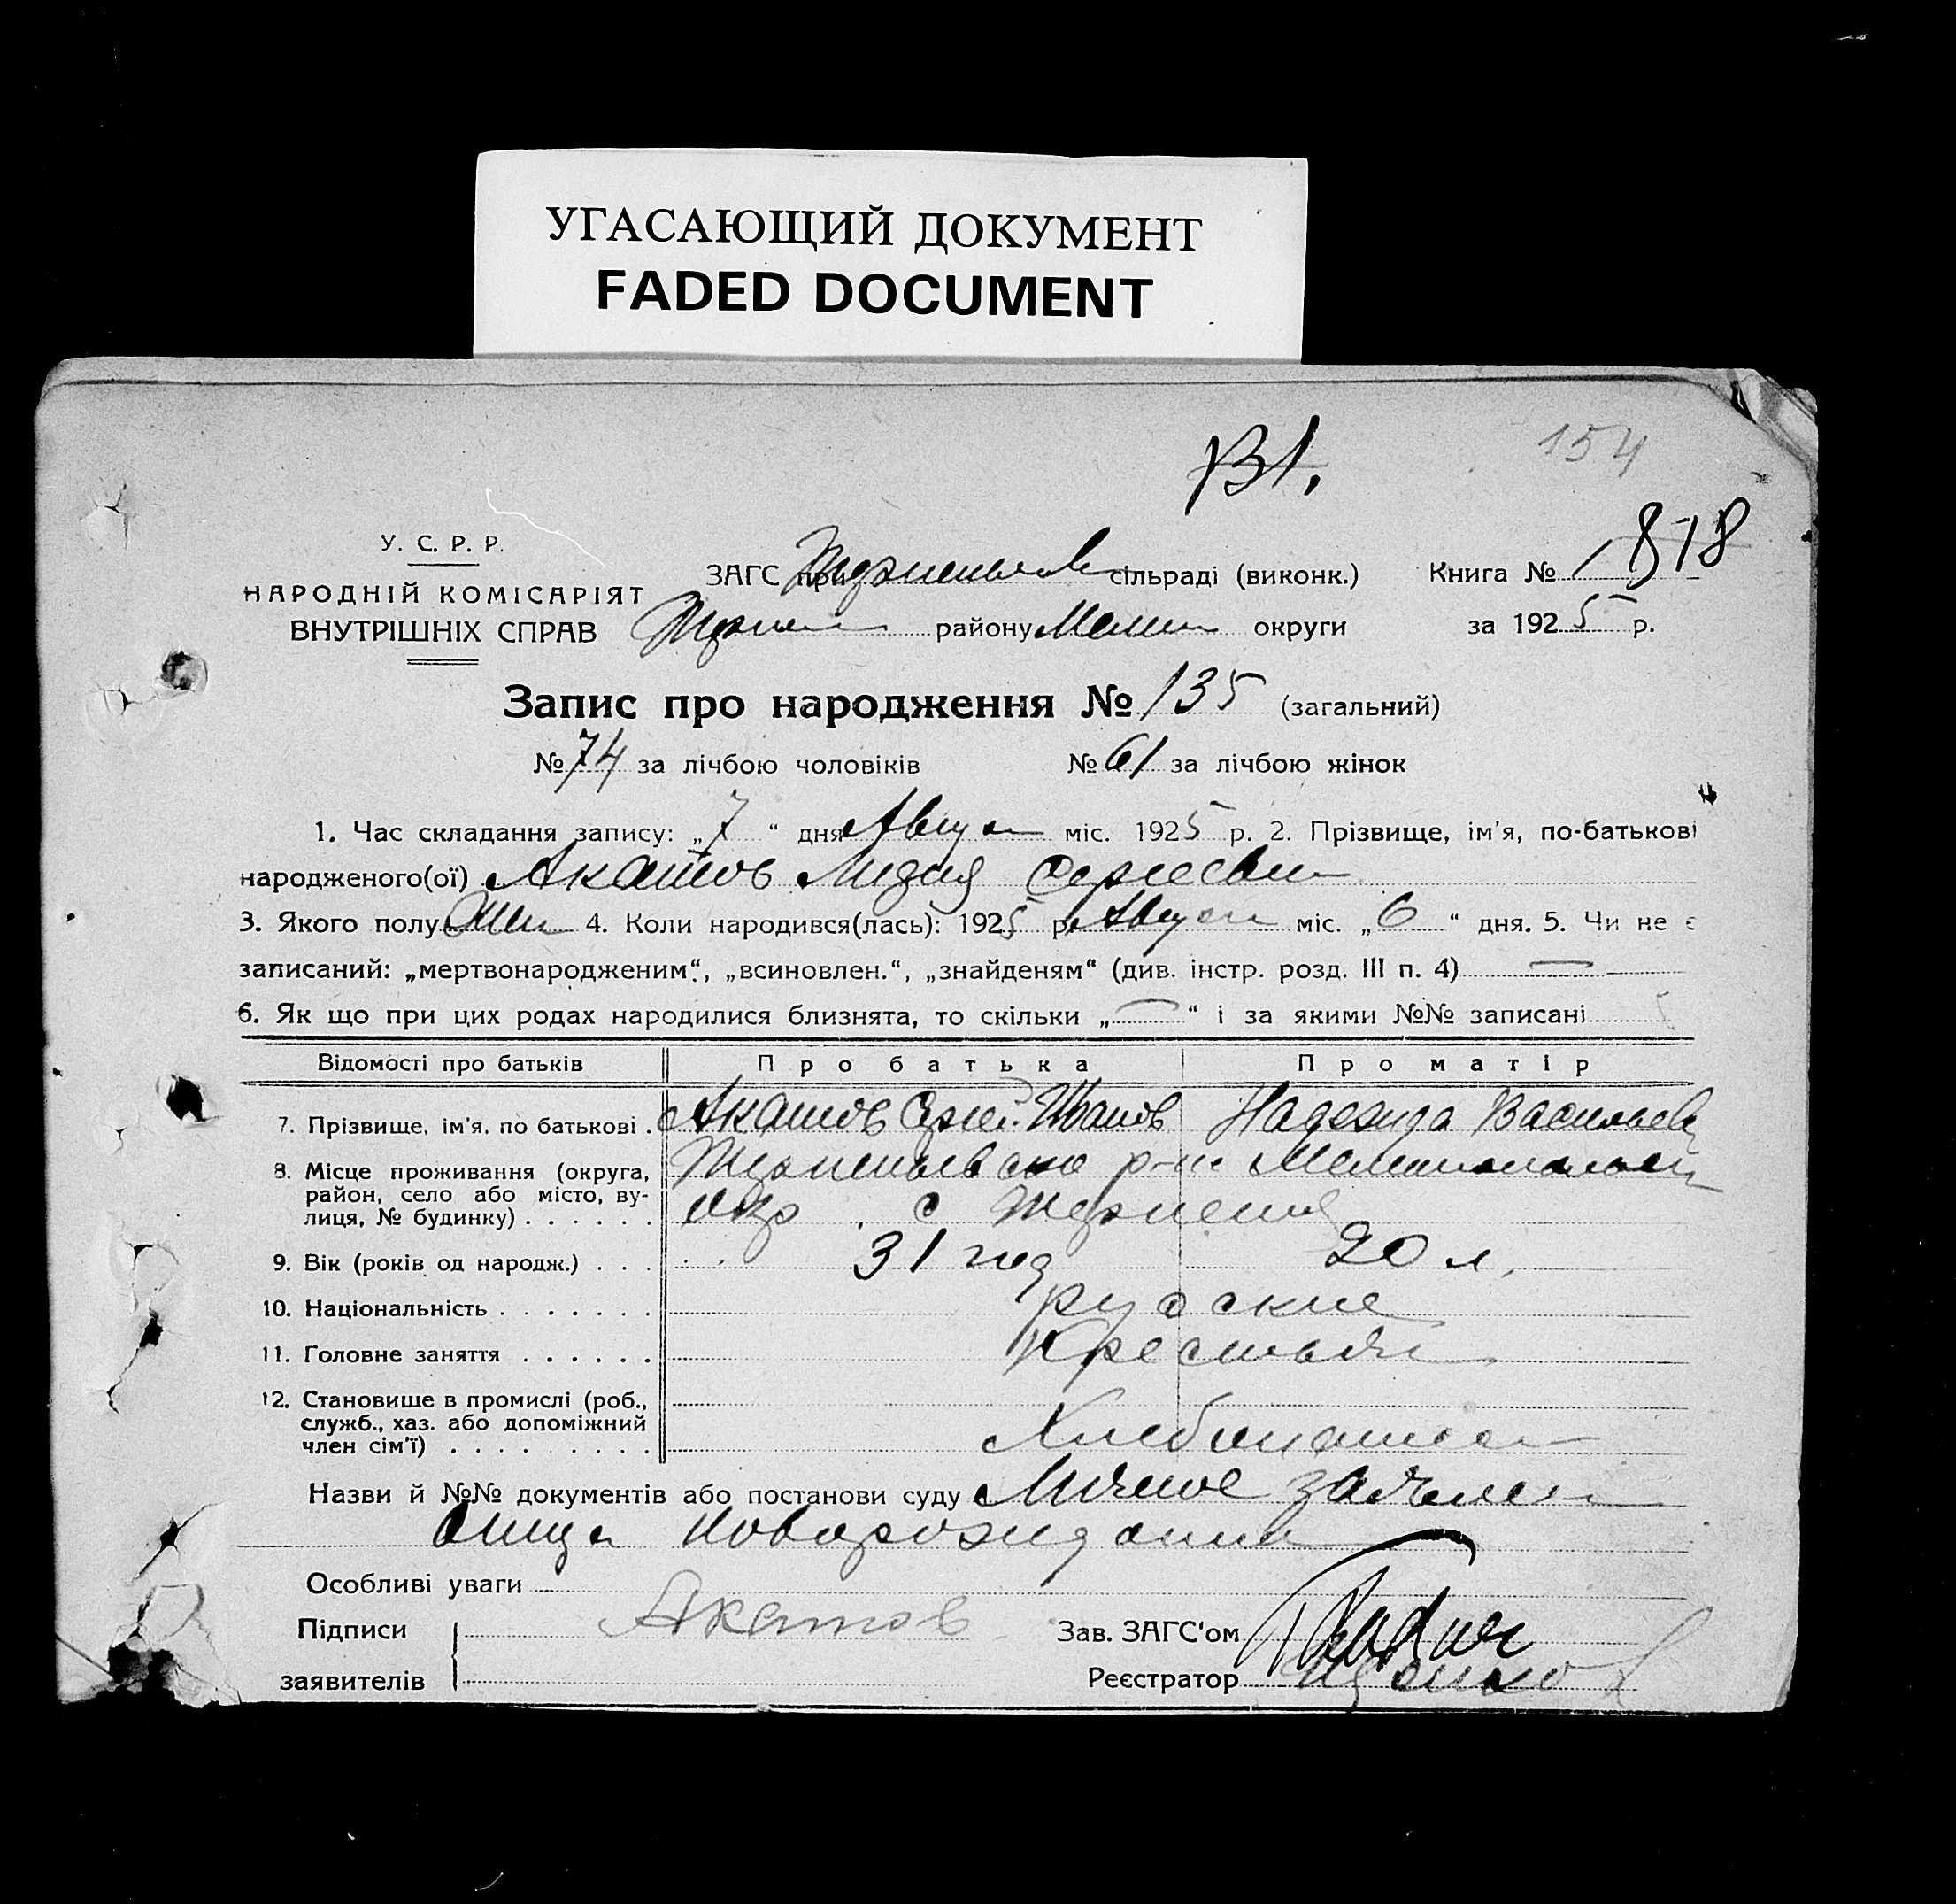 УГАСАЮЩИЙ ДОКУМЕНТ
FADED DOCUMENT
154
В1.
У. С. Р. Р.
НАРОДНІЙ КОМІСАРІЯТ
ВНУТРІШНІХ СПРАВ
ЗАГС при сільраді (виконк.) Книга № 1 818
району Мелит округи за 1925 р.
Запис про народження № 135 (загальний)
№ 74 за лічбою чоловіків № 61 за лічбою жінок
1. Час складання запису: „7“ дня Август міс. 1925 р. 2. Прізвище, ім'я, по-батькові
народженого(ої) Акатов Лидия Сергеевн
3. Якого полу Жен 4. Коли народився(лась): 1925 р. Август міс. „6“ дня. 5. Чи не є
записаний: „мертвонародженим“, „всиновлен.“, „знайденям“ (див. інстр. розд. III п. 4) —
6. Як що при цих родах народилися близнята, то скільки „—“ і за якими №№ записані
Відомості про батьків Про батька Про матір
7. Прізвище, ім'я, по батькові . Акатов Сергей Иванов Надежда Васильев
8. Місце проживання (округа, район, село або місто, вулиця, № будинку) . . . . . . р-н Мелитопольск
окр с
9. Вік (років од народж.) . . . 31 год 20 л.
10. Національність . . . . . . . русские
11. Головне заняття . . . . . . Крестьян
12. Становище в промислі (роб.,
служб., хаз. або допоміжний
член сім'ї) . . . . . . . . . Хлебопашест
Назви й №№ документів або постанови суду Личное заявлен
отца новорожденн
Особливі уваги
Підписи Акатов Зав. ЗАГС'ом
заявителів Реєстратор